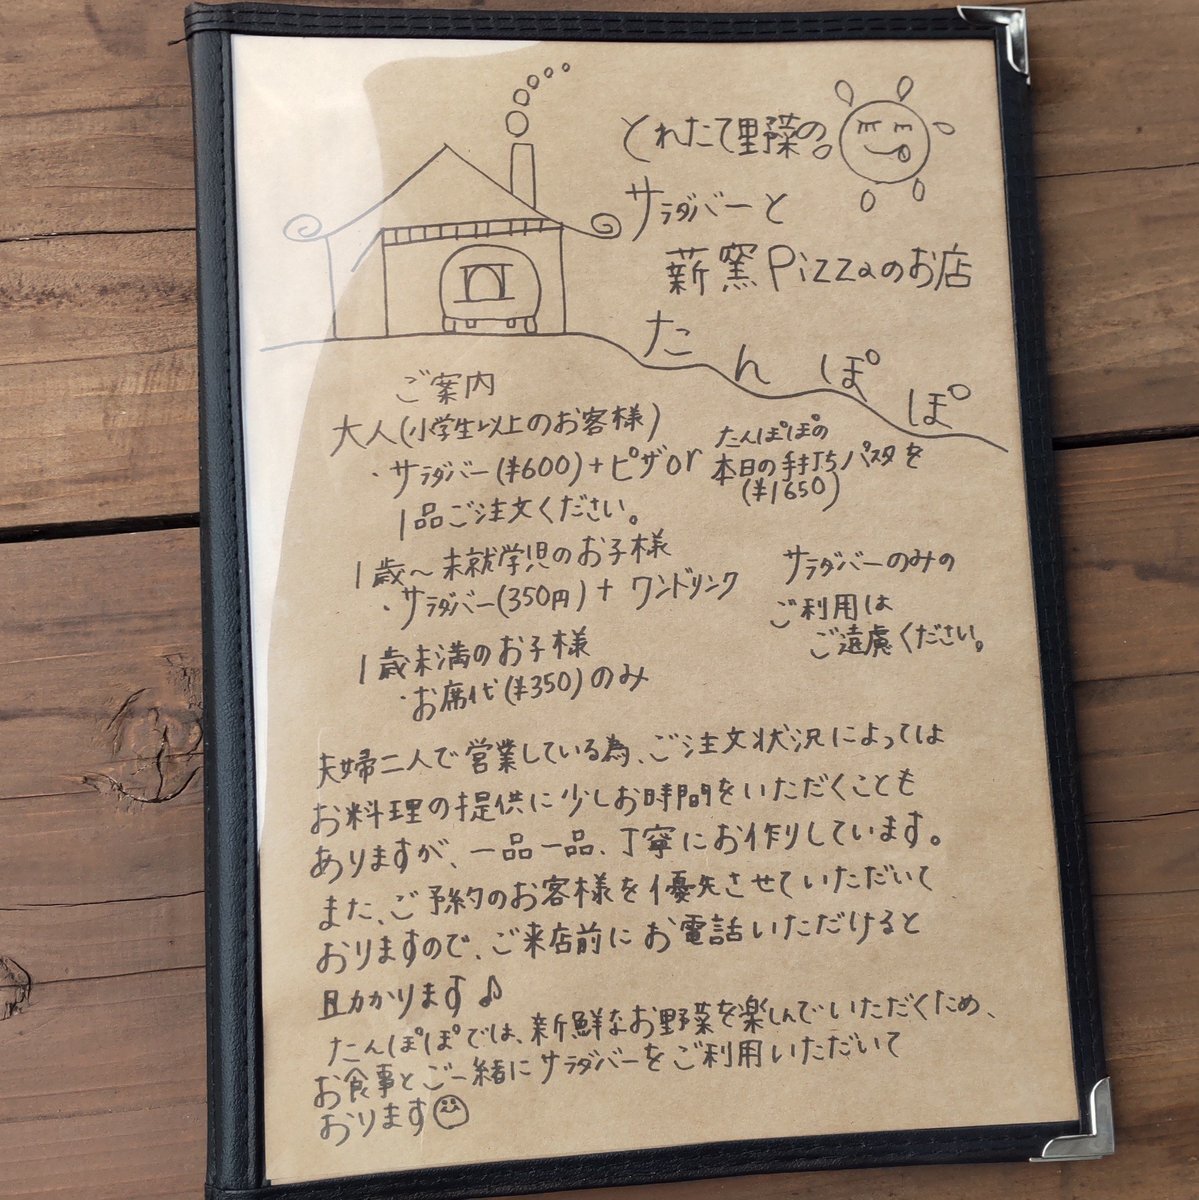 とれたて野菜の
サラダバーと
薪窯Pizzaのお店
たんぽぽ
ご案内
大人(小学生以上のお客様)
・サラダバー(¥600)+ピザor
たんぽぽの
本日の手打ちパスタを
(¥1650)
1品ご注文ください。
1歳〜未就学児のお子様
・サラダバー(350円)+ワンドリンク
サラダバーのみの
ご利用は
ご遠慮ください。
1歳未満のお子様
・お席代(¥350)のみ
夫婦二人で営業している為、ご注文状況によっては
お料理の提供に少しお時間をいただくことも
ありますが、一品一品、丁寧にお作りしています。
また、ご予約のお客様を優先させていただいて
おりますので、ご来店前にお電話いただけると
助かります♪
たんぽぽでは、新鮮なお野菜を楽しんでいただくため、
お食事とご一緒にサラダバーをご利用いただいて
おります